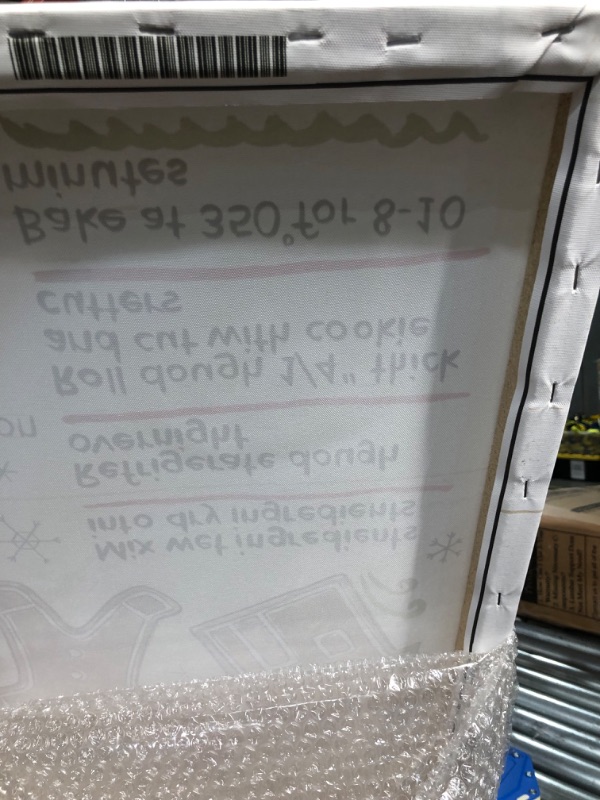 Mix wet ingredients
into dry ingredients
Refrigerate dough
overnight
Roll dough 1/4" thick
and cut with cookie
cutters
Bake at 350° for 8-10
minutes
on